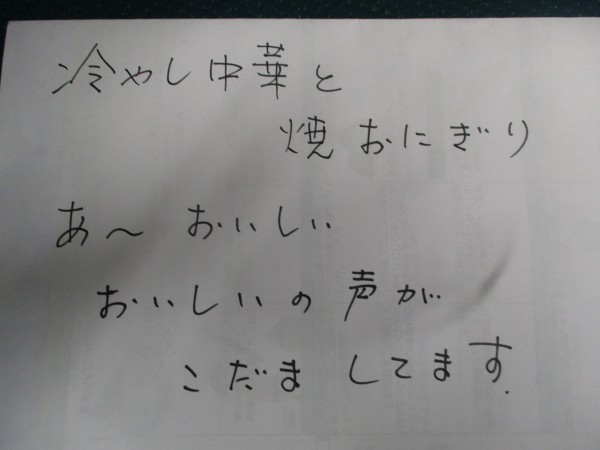 冷やし中華と
焼おにぎり
あ～ おいしい
おいしいの声が
こだましてます.